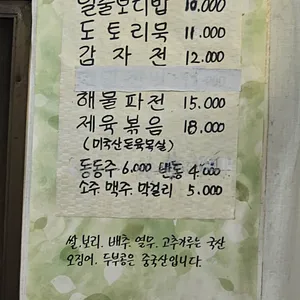 열물보리밥 10.000
도토리묵 11.000
감자전 12.000
해물파전 15.000
제육볶음 18.000
(미국산돈육목살)
동동주 6.000 반동 4.000
소주. 맥주. 막걸리 5.000
쌀.보리. 배추. 열무. 고추가루는 국산
오징어. 두부콩은 중국산입니다.